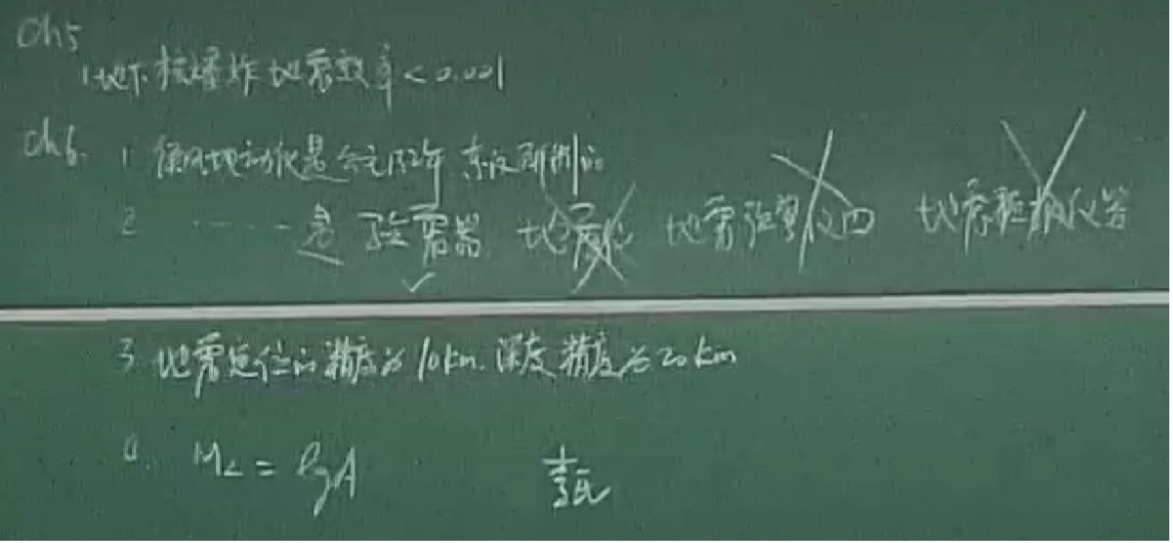 Ch5
1 地下核爆炸地震效率<0.001
Ch6. 1 候风地动仪是公元132年 东汉 所制的
2 ······是 验震器 地震仪 地震强
3 地震定位的精度为10km. 深度精度为20km
4. ML = lgA 李氏